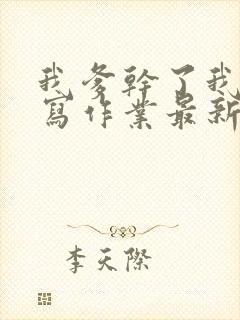 我爹幹了我
寫作業最新
李天際